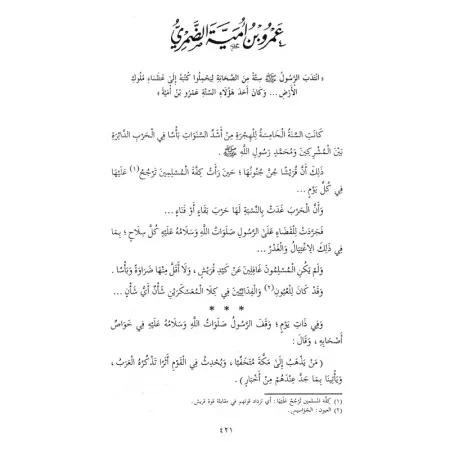 عَمْرُو بْنُ أُمَيَّةَ الضَّمْرِيُّ
« انْتَدَبَ الرَّسُولُ ﷺ سِتَّةً مِنَ الصَّحَابَةِ لِيَحْمِلُوا كُتُبَهُ إِلَىٰ عُظَمَاءِ مُلُوكِ
الْأَرْضِ ... وَكَانَ أَحَدَ هَؤُلَاءِ السِّتَّةِ عَمْرُو بْنُ أُمَيَّةَ »
كَانَتِ السَّنَةُ الْخَامِسَةُ لِلْهِجْرَةِ مِنْ أَشَدِّ السَّنَوَاتِ بَأْسًا فِي الْحَرْبِ الدَّائِرَةِ
بَيْنَ الْمُشْرِكِينَ وَمُحَمَّدٍ رَسُولِ اللَّهِ ﷺ .
ذَلِكَ أَنَّ قُرَيْشًا جُنَّ جُنُونُهَا ؛ حِينَ رَأَتْ كِفَّةَ الْمُسْلِمِينَ تَرْجُحُ(١) عَلَيْهَا
فِي كُلِّ يَوْمٍ ...
وَأَنَّ الْحَرْبَ غَدَتْ بِالنِّسْبَةِ لَهَا حَرْبَ بَقَاءٍ أَوْ فَنَاءٍ ...
فَجَرَّدَتْ لِلْقَضَاءِ عَلَىٰ الرَّسُولِ صَلَوَاتُ اللَّهِ وَسَلَامُهُ عَلَيْهِ كُلَّ سِلَاحٍ ؛ بِمَا
فِي ذَلِكَ الِاغْتِيَالُ وَالْغَدْرُ ...
وَلَمْ يَكُنِ الْمُسْلِمُونَ غَافِلِينَ عَنْ كَيْدِ قُرَيْشٍ ، وَلَا أَقَلَّ مِنْهَا ضَرَاوَةً وَبَأْسًا .
وَقَدْ كَانَ لِلْعُيُونِ(٢) وَالْفِدَائِيِّينَ فِي كِلَا الْمُعَسْكَرَيْنِ شَأْنٌ أَيُّ شَأْنٍ ...
* * *
وَفِي ذَاتِ يَوْمٍ ؛ وَقَفَ الرَّسُولُ صَلَوَاتُ اللَّهِ وَسَلَامُهُ عَلَيْهِ فِي خَوَاصِّ
أَصْحَابِهِ ، وَقَالَ :
( مَنْ يَذْهَبُ إِلَىٰ مَكَّةَ مُتَخَفِّيًا ، وَيُحْدِثُ فِي الْقَوْمِ أَثَرًا تَذْكُرُهُ الْعَرَبُ ،
وَيَأْتِينَا بِمَا جَدَّ عِنْدَهُمْ مِنْ أَخْبَارٍ ) .
(١) كِفَّة المسلمين تَرْجُحُ عَلَيْهَا : أي تزداد قوتهم في مقابلة قوة قريش .
(٢) العيون : الجَوَاسِيس .
٤٢١